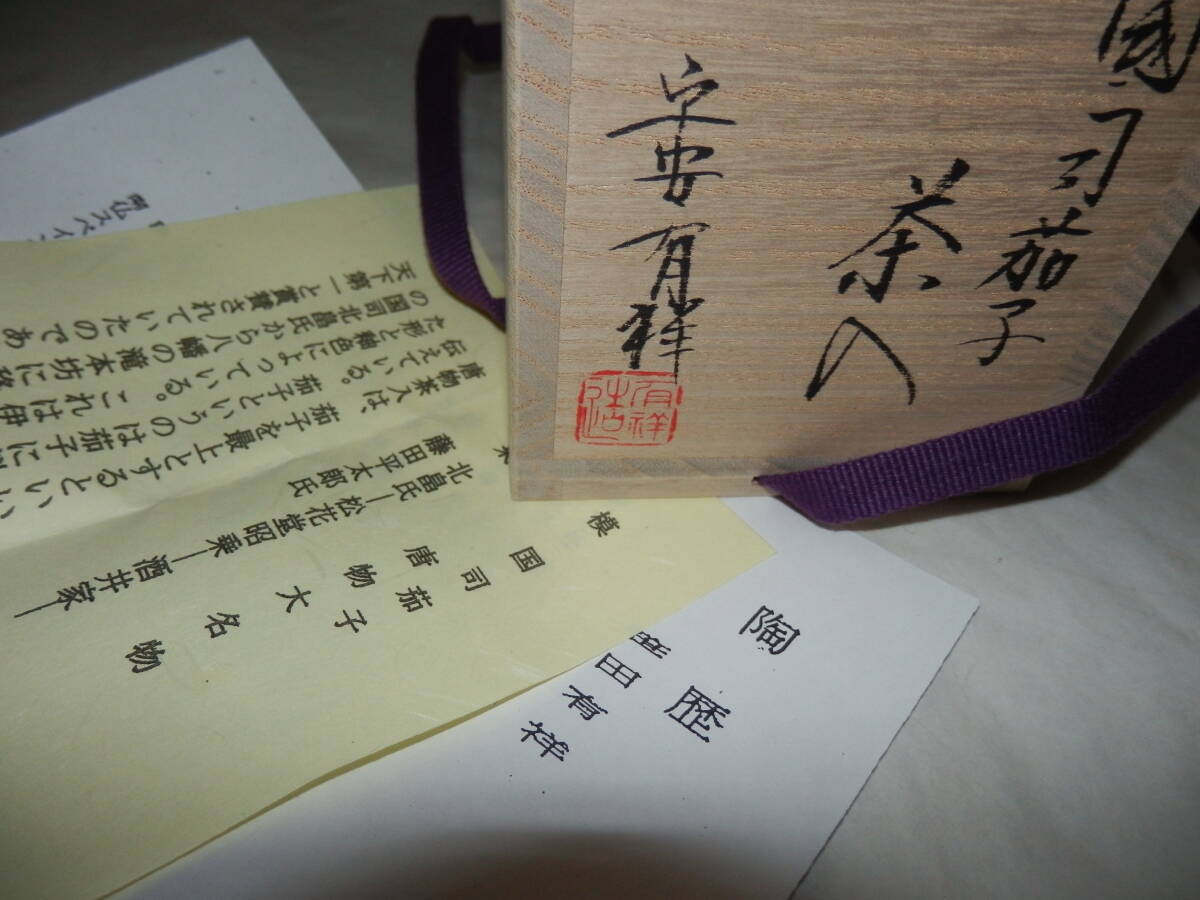 國司茄子
茶入
宇安有祥
有祥
造
陶歴
田有祥
模
国司茄子
唐物大名物
北畠氏―松花堂昭乗―酒井家―
藤田平太郎氏
来
唐物茶入は、茄子を最上とするとい
伝えている。茄子というのは茄子に
た形と釉色によっている。これは伊
の国司北畠氏から八幡の瀧本坊に
天下第一と賞賛されていたのであ
スペイン